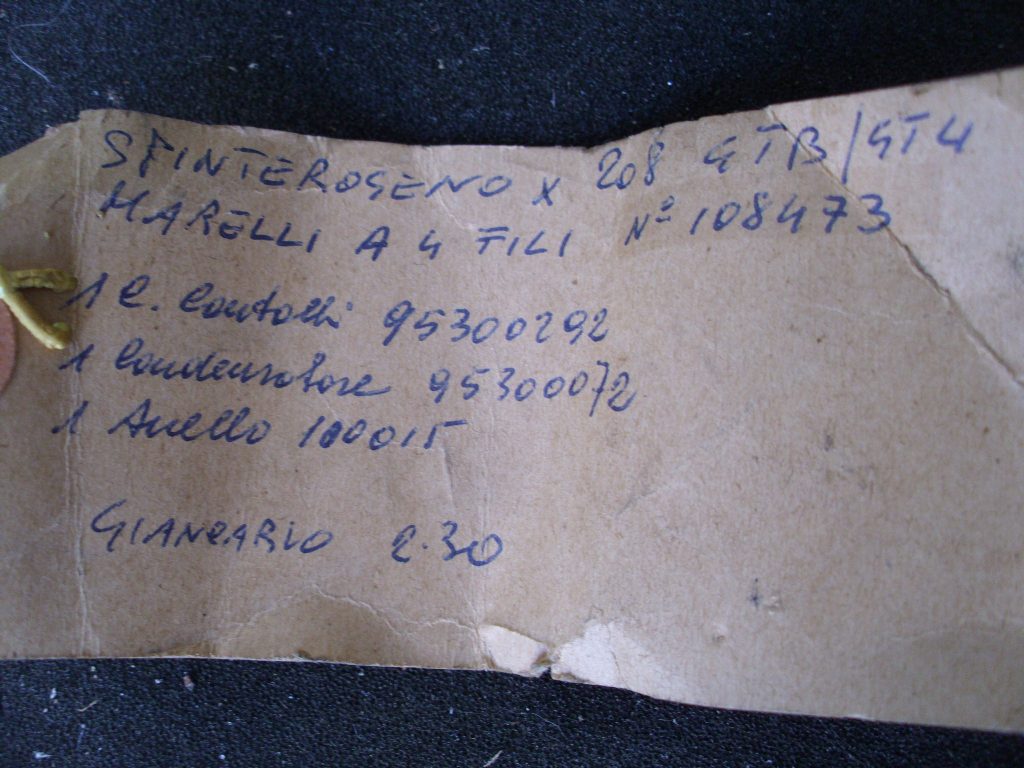 SPINTEROGENO x 208 GTB/GT4
MARELLI A 4 FILI Nº 108473
1 C. Contatti 95300292
1 Condensatore 95300072
1 Anello 100015
GIANCARLO 2.30